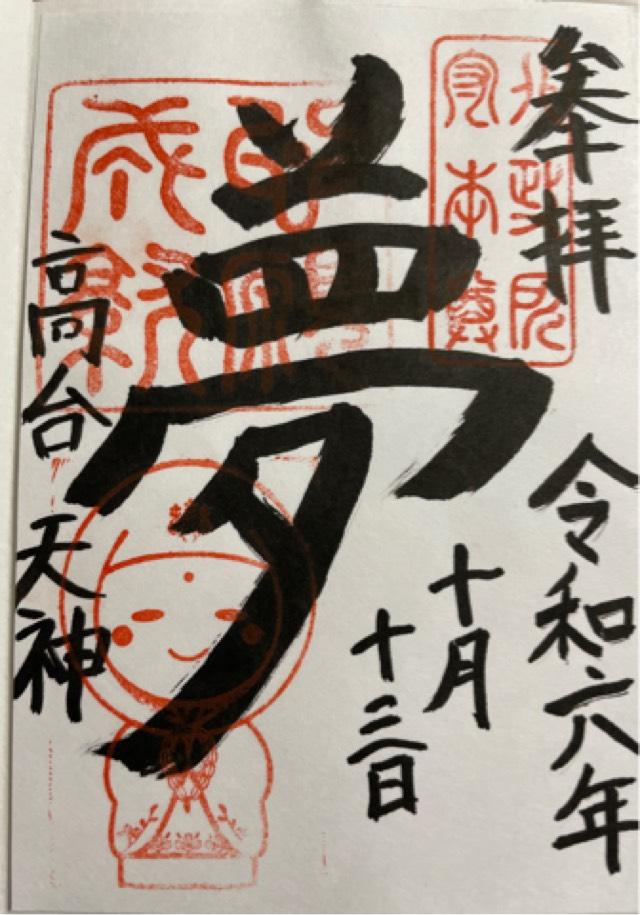 奉拝
令和六年
十月
十三日
夢
高台天神